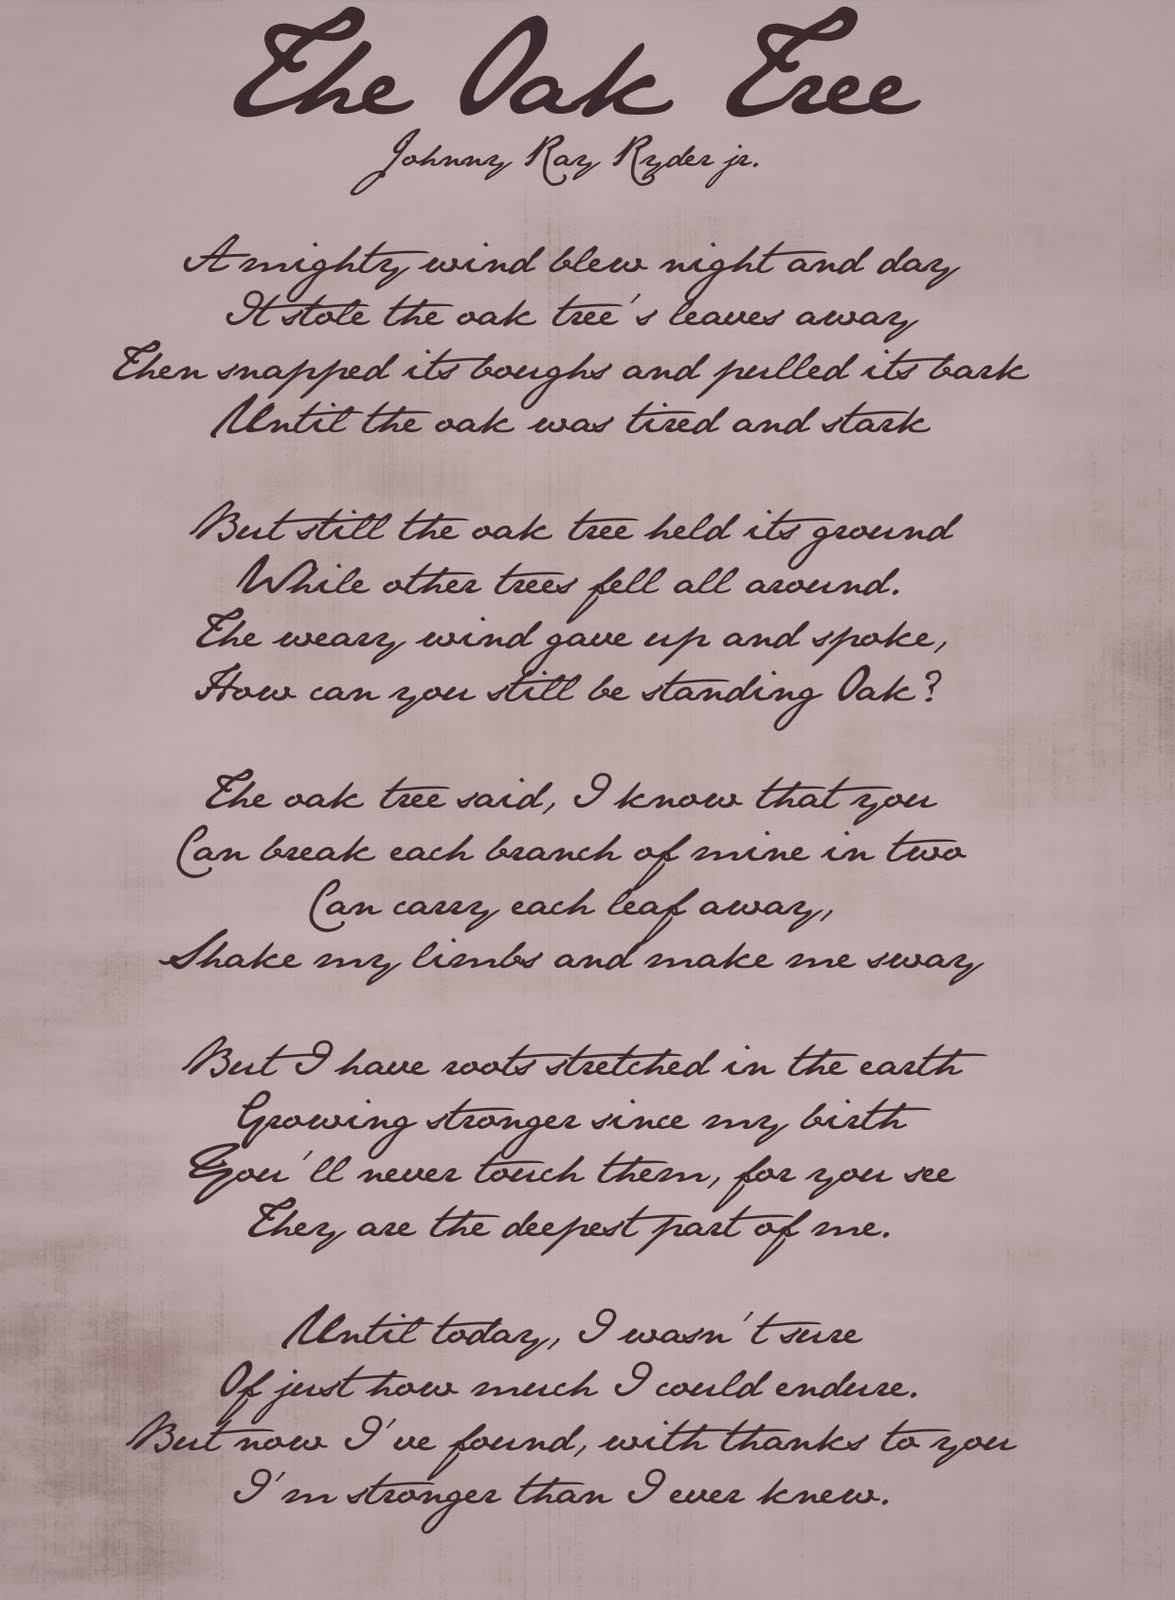 The Oak Tree
Johnny Ray Ryder jr.
A mighty wind blew night and day
It stole the oak tree's leaves away
Then snapped its boughs and pulled its bark
Until the oak was tired and stark
But still the oak tree held its ground
While other trees fell all around.
The weary wind gave up and spoke,
How can you still be standing Oak?
The oak tree said, I know that you
Can break each branch of mine in two
Can carry each leaf away,
Shake my limbs and make me sway
But I have roots stretched in the earth
Growing stronger since my birth
You'll never touch them, for you see
They are the deepest part of me.
Until today, I wasn't sure
Of just how much I could endure.
But now I've found, with thanks to you
I'm stronger than I ever knew.